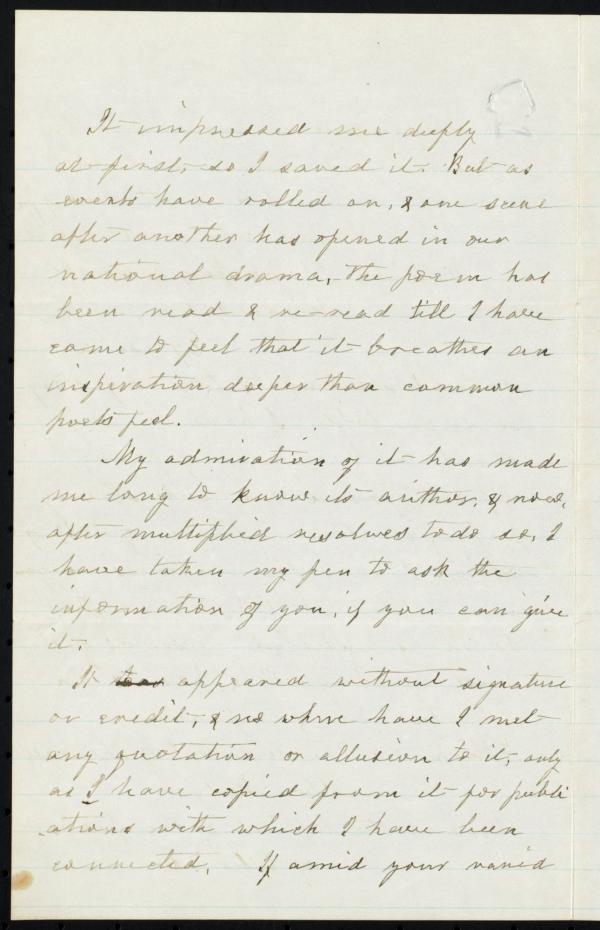 It impressed me deeply
at first, so I saved it. But as
events have rolled on, & one scene
after another has opened in our
national drama, the poem has
been read & re-read till I have
come to feel that it breathes an
inspiration deeper than common
poets feel.
My admiration of it has made
me long to know its author, & now,
after multiplied resolves to do so, I
have taken my pen to ask the
information of you, if you can give
it.
It appeared without signature
or credit, & no where have I met
any quotation or allusion to it, only
as I have copied from it for publi
ations with which I have been
connected. If amid your varied